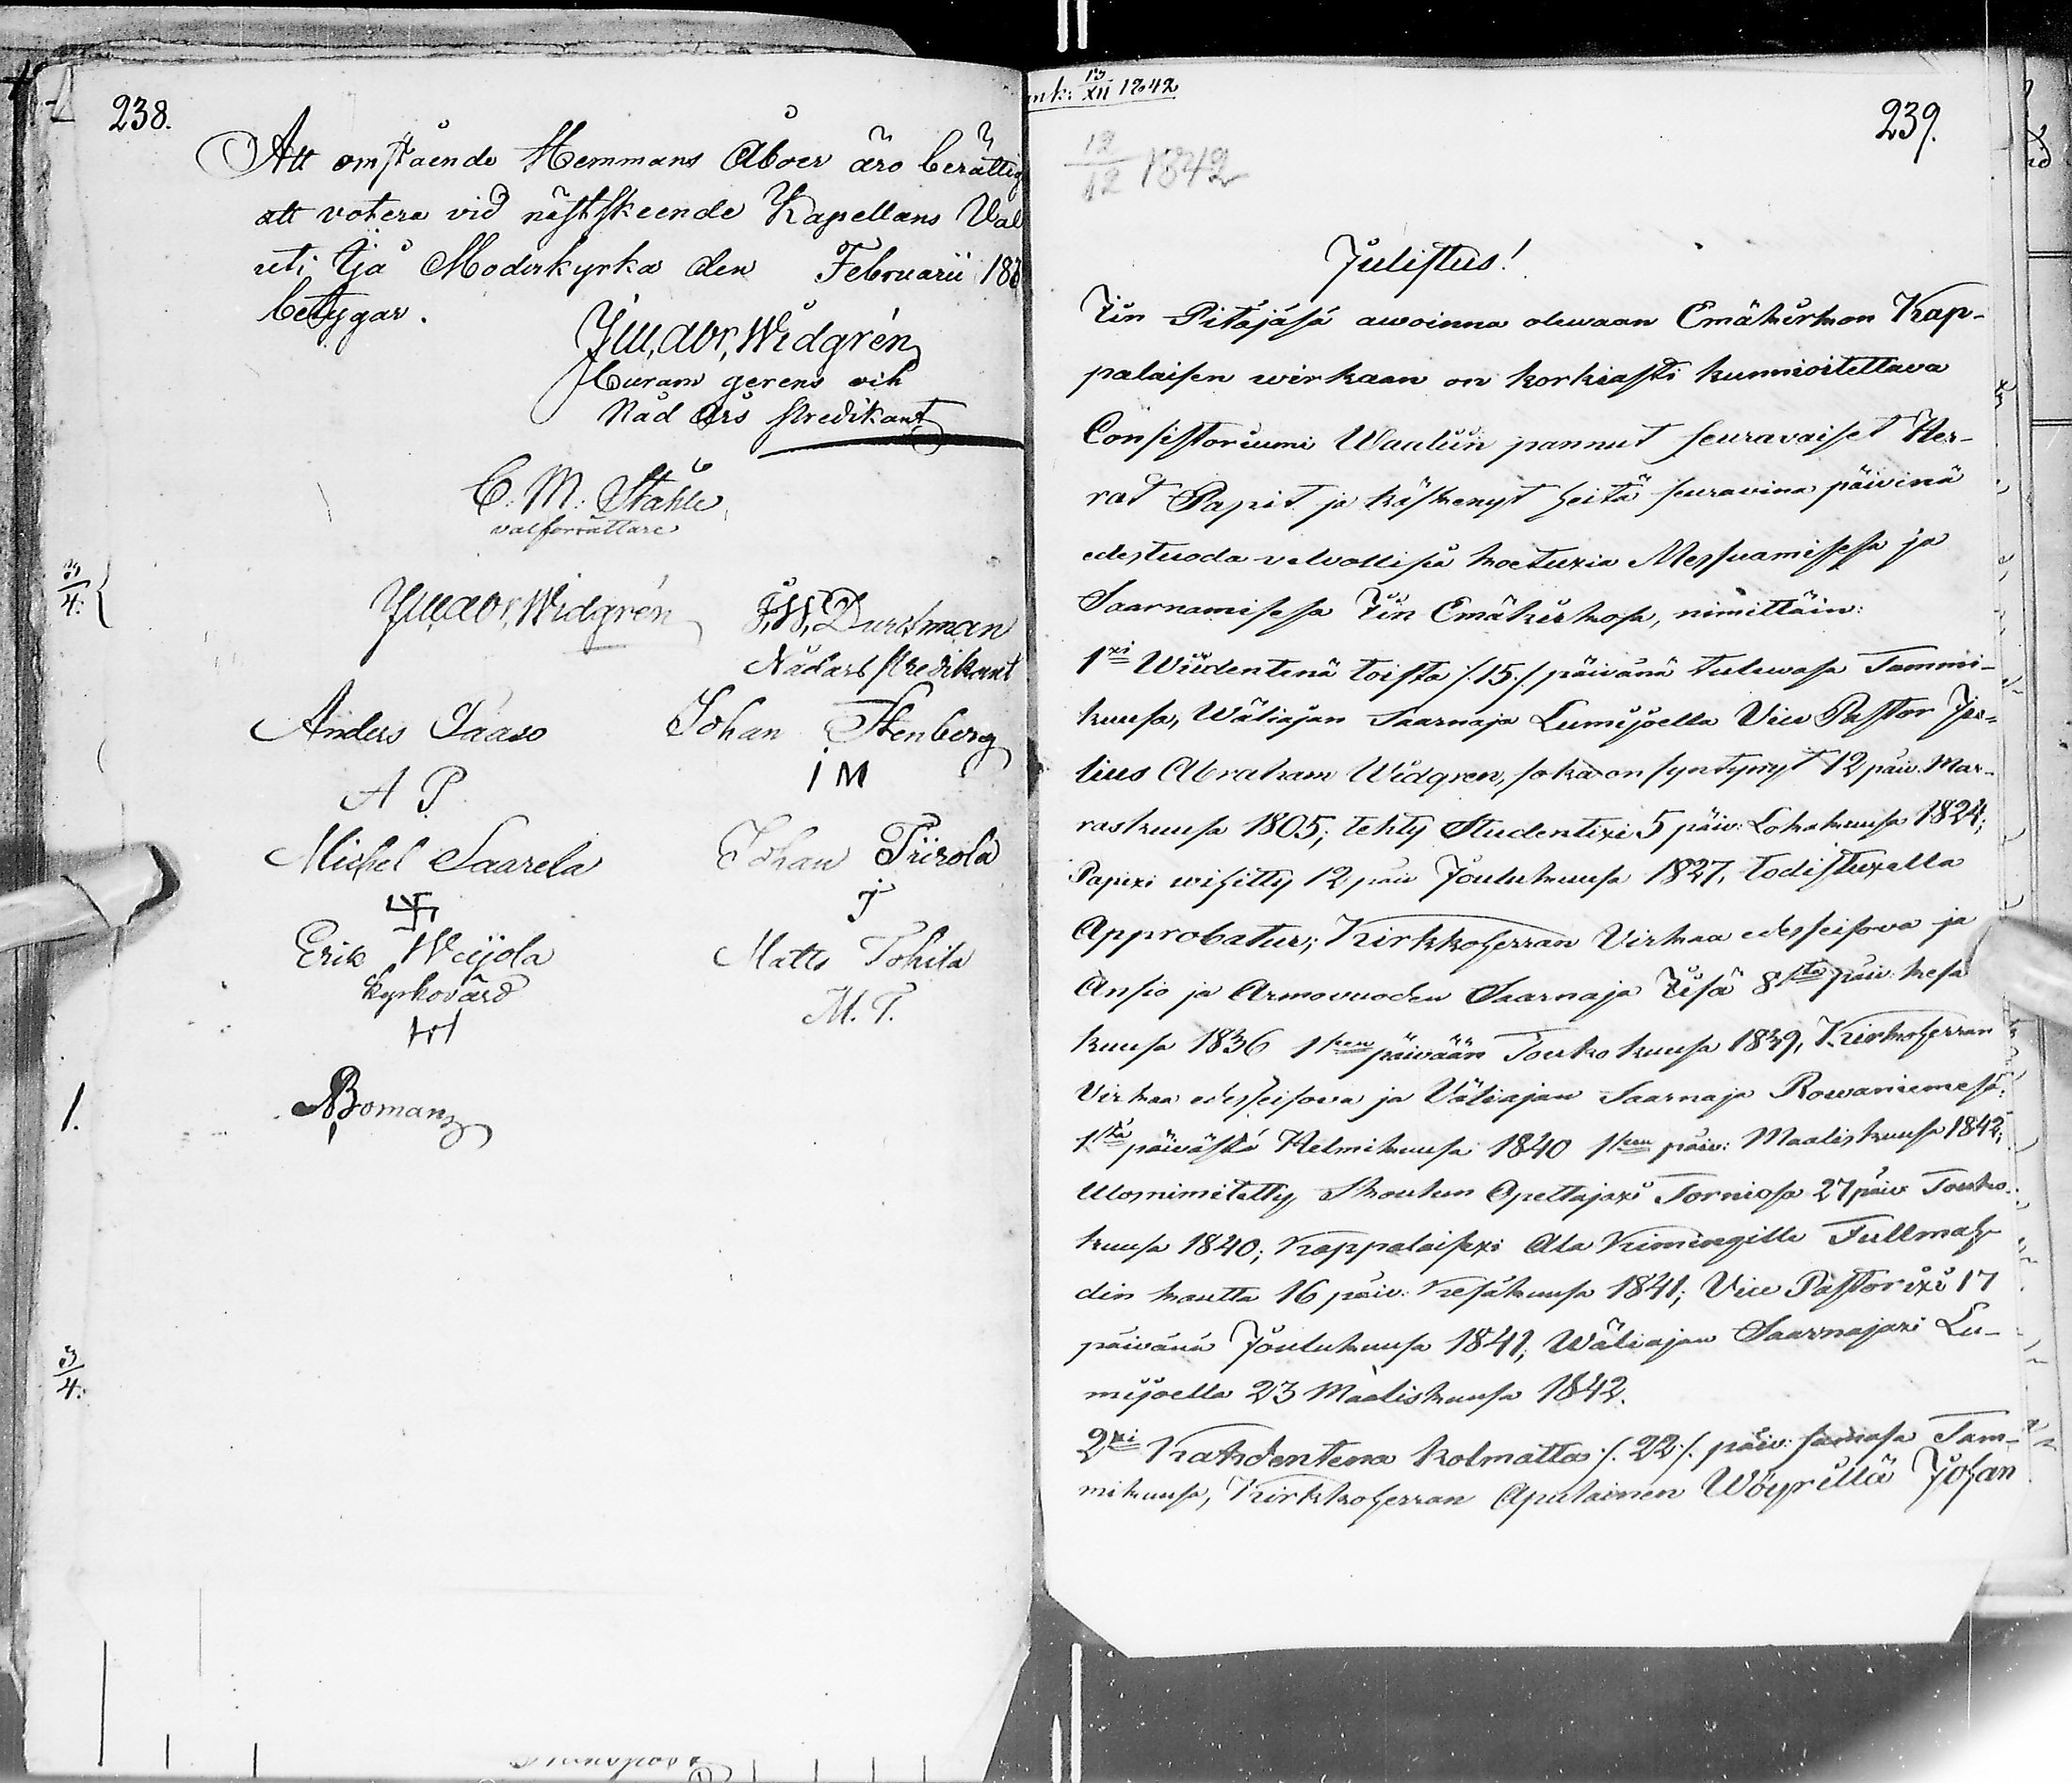 238.
Att omstående Hemmans Åboer äro berättig
att votera vid nästskeende Kapellans Val
uti Ijå Moderkyrka den Februarii 18
betygar.
Jul, Abr, Widgrén
Curam gerens och
Nåd Års Predikant
C. M. Stahle
valförrättare
3/4:
Jul, Abr, Widgrén J, W, Durchman
Nådårs Predikant
Anders Paaso Johan Stenberg
A P. I M
Michel Saarela Johan Tiirola
J
Erik Weijola Matts Tohila
Kyrkovärd M. T.
1. Boman
3/4:
ank: 13/XII 1842
239.
12/12 1842
Julistus!
Iin Pitäjäsä awoinna olewaan Emäkirkon Kap-
palaisen wirkaan on korkiasti kunnioitettava
Consistoriumi Waaliin pannut seuravaiset Her-
rat Papit ja käskenyt heitä seuravina päivinä
edestuoda velvollisia koetuxia Messuamisessa ja
Saarnamisessa Iin Emäkirkosa, nimittäin:
1xi Wiidentenä toista /:15:/ päivänä tulewasa Tammi-
kuusa, Wäliajan Saarnaja Lumijoella Vice Pastor Ju-
lius Abraham Widgren, joka on syntynyt 12 päiv. Mar-
raskuusa 1805; tehty Studentixi 5 päiv: Lokakuusa 1824;
Papixi wihitty 12 päiv Joulukuusa 1827, todistuxella
Approbatur; Kirkkoherran Virkaa edesseisova ja
Ansio ja Armovuoden Saarnaja Iisä 8sta päiv: kesä
kuusa 1836 1seen päivään Toukokuusa 1839, Kirkkoherran
Virkaa edesseisova ja Väliajan Saarnaja Rowaniemesä,
1stä päivästä Helmikuusa 1840 1seen päiv: Maaliskuusa 1842;
Ulosnimitetty Skoulun Opettajaxi Torniosa 27 päiv Touko-
kuusa 1840; Kappalaisexi Ala Kimingille Fullmah
din kautta 16 päiv: Kesäkuusa 1841; Vice Pastorixi 17
päivänä Joulukuusa 1841; Wäliajan Saarnajaxi Lu-
mijoella 23 Maaliskuusa 1842.
2xi Kahdentena kolmatta /:22:/ päiv: samasa Tam-
mikuusa, Kirkkoherran Apulainen Wöyrillä Johan